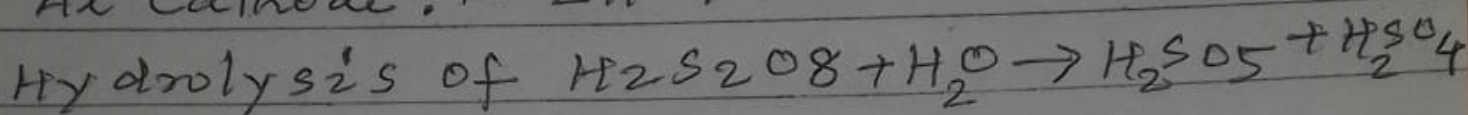 At Cathode :
Hydrolysis of H2S2O8 + H2O → H2SO5 + H2SO4